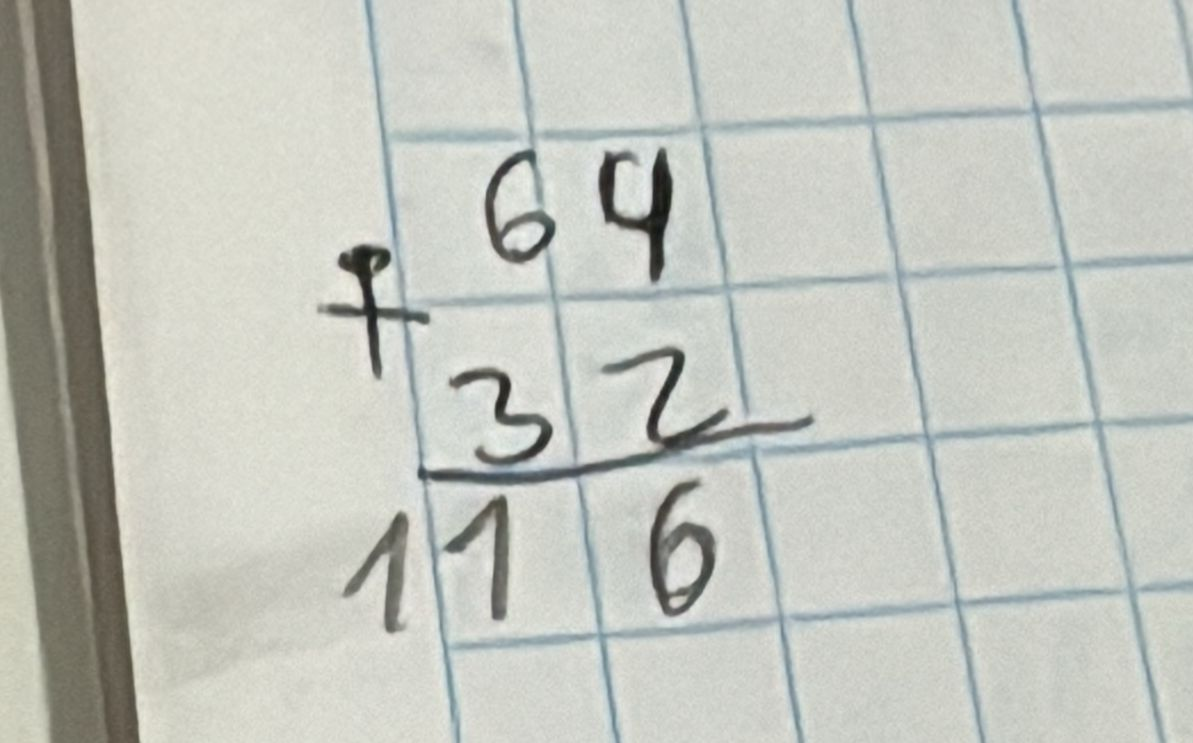 64
+
32
116